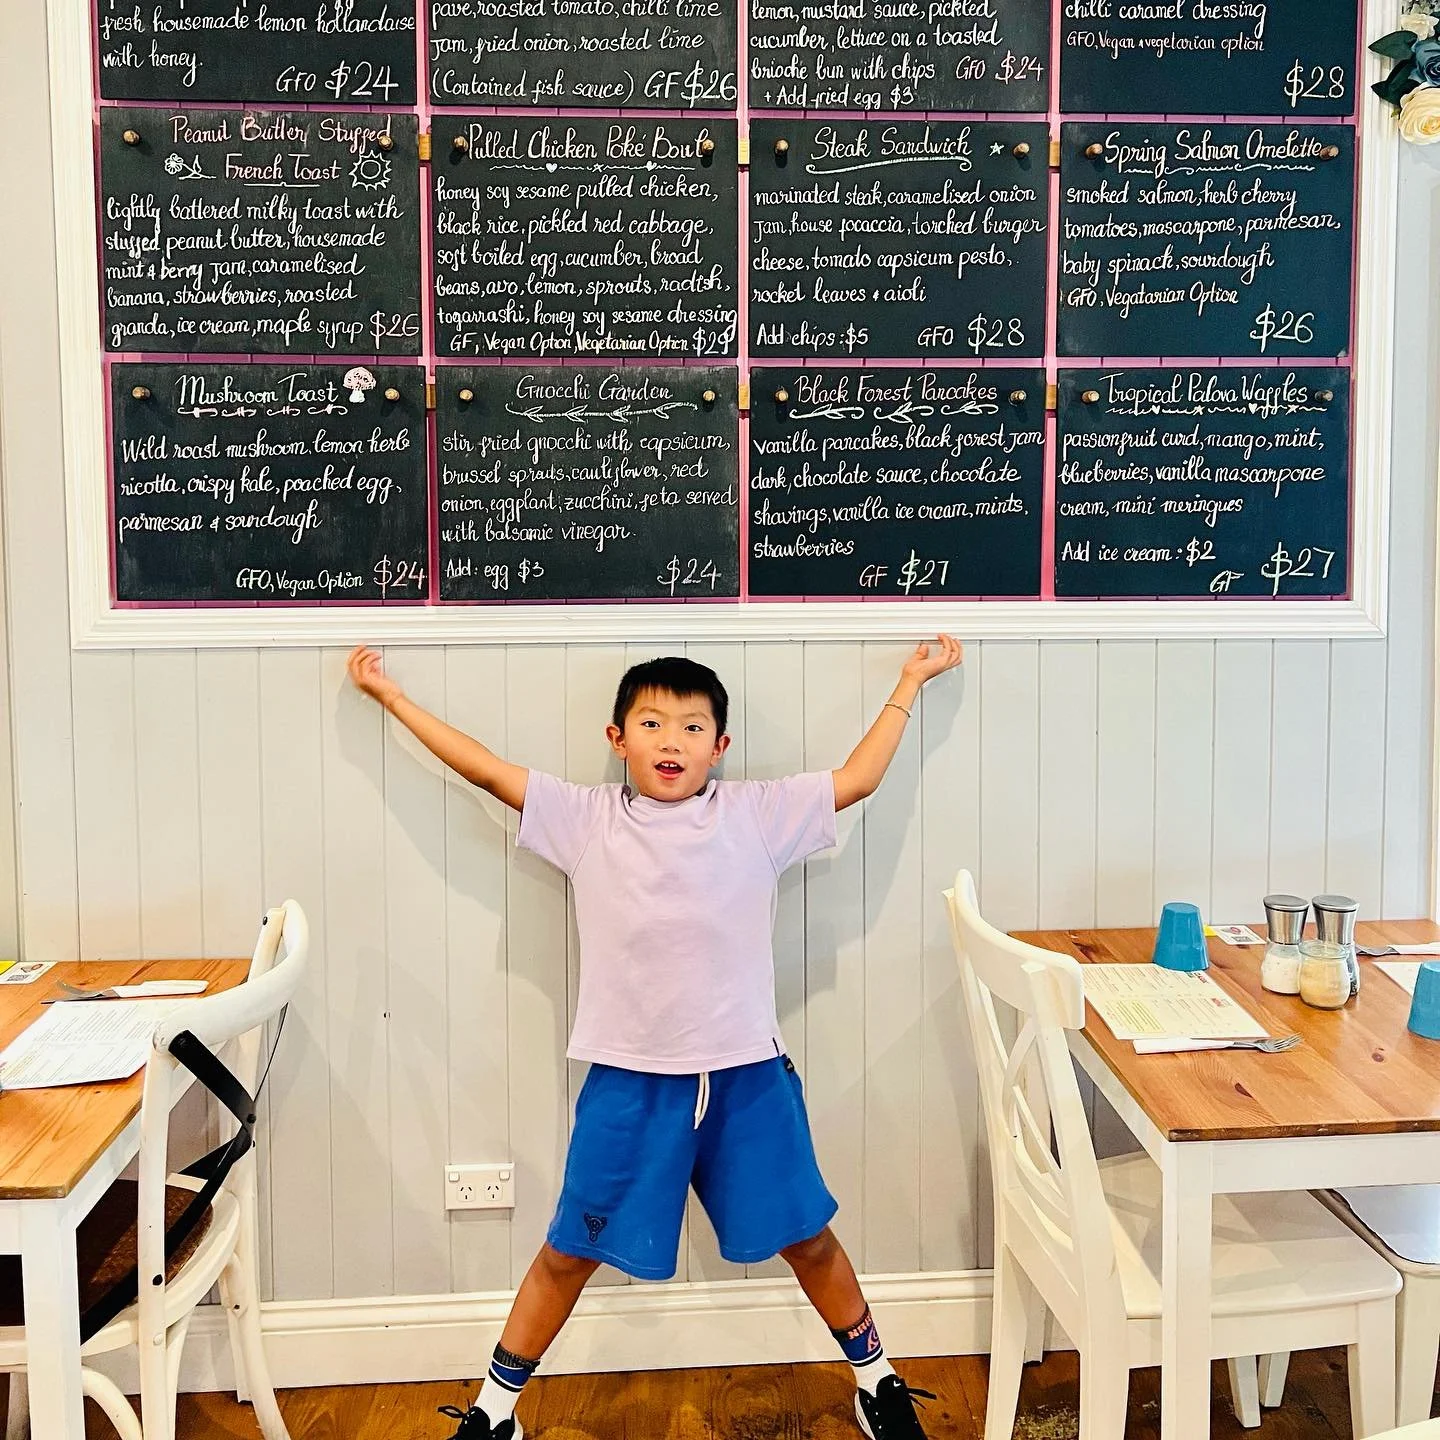 fresh housemade lemon hollandaise
with honey.
GFO $24
pave, roasted tomato, chilli lime
Jam, fried onion, roasted lime
(Contained fish sauce) GF $26
lemon, mustard sauce, pickled
cucumber, lettuce on a toasted
brioche bun with chips GFO $24
+ Add fried egg $3
chilli caramel dressing
GFO, Vegan & vegetarian option
$28
Peanut Butter Stuffed
French Toast
lightly battered milky toast with
stuffed peanut butter, housemade
mint & berry Jam, caramelised
banana, strawberries, roasted
granda, ice cream, maple syrup $26
Pulled Chicken Poké Bowl
honey soy sesame pulled chicken,
black rice, pickled red cabbage,
soft boiled egg, cucumber, broad
beans, avo, lemon, sprouts, radish,
togarrashi, honey soy sesame dressing
GF, Vegan Option, Vegetarian Option $29
Steak Sandwich
marinated steak, caramelised onion
Jam, house focaccia, torched burger
cheese, tomato capsicum pesto,
rocket leaves & aioli
Add chips: $5 GFO $28
Spring Salmon Omelette
smoked salmon, herb cherry
tomatoes, mascarpone, parmesan,
baby spinach, sourdough
GFO, Vegatarian Option
$26
Mushroom Toast
Wild roast mushroom, lemon herb
ricotta, crispy kale, poached egg,
parmesan & sourdough
GFO, Vegan Option $24
Gnocchi Garden
stir fried gnocchi with capsicum,
brussel sprouts, cauliflower, red
onion, eggplant, zucchini, feta served
with balsamic vinegar.
Add: egg $3 $24
Black Forest Pancakes
vanilla pancakes, black forest Jam
dark, chocolate sauce, chocolate
shavings, vanilla ice cream, mints,
strawberries
GF $27
Tropical Palova Waffles
passionfruit curd, mango, mint,
blueberries, vanilla mascarpone
cream, mini meringues
Add ice cream: $2
GF $27